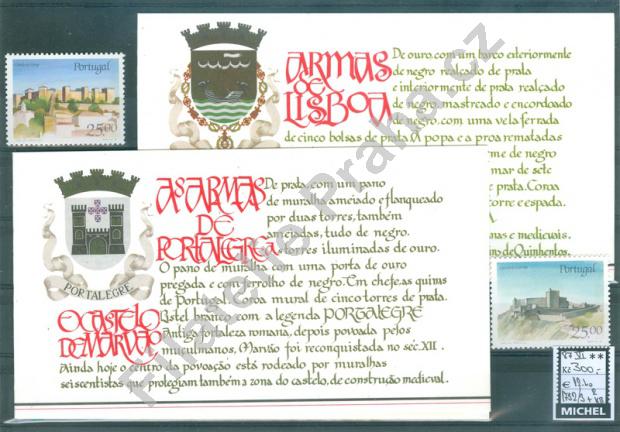 Portugal
25.00
ARMAS
DE
LISBOA
De ouro, com um barco exteriormente
de negro realçado de prata
e interiormente de prata realçado
de negro, mastreado e encordoado
de negro, com uma vela ferrada
de cinco bolsas de prata. A popa e a proa rematadas
de negro
mar de sete
de prata. Coroa
torre e espada.
e medievais,
de Quinhentos.
AS ARMAS
DE
PORTALEGRE
De prata, com um pano
de muralha ameiado e flanqueado
por duas torres, também
ameiadas, tudo de negro.
As torres iluminadas de ouro.
O pano de muralha com uma porta de ouro
pregada e com ferrolho de negro. Em chefe, as quinas
de Portugal. Coroa mural de cinco torres de prata.
Listel branco com a legenda PORTALEGRE
PORTALEGRE
O CASTELO
DE MARVÃO
Antiga fortaleza romana, depois povoada pelos
muçulmanos, Marvão foi reconquistada no séc. XII.
Ainda hoje o centro da povoação está rodeado por muralhas
seiscentistas que protegiam também a zona do castelo, de construção medieval.
Portugal
25.00
87 **
Kč 300,-
€
1732/3 +
MICHEL
Filatelie Praha.cz